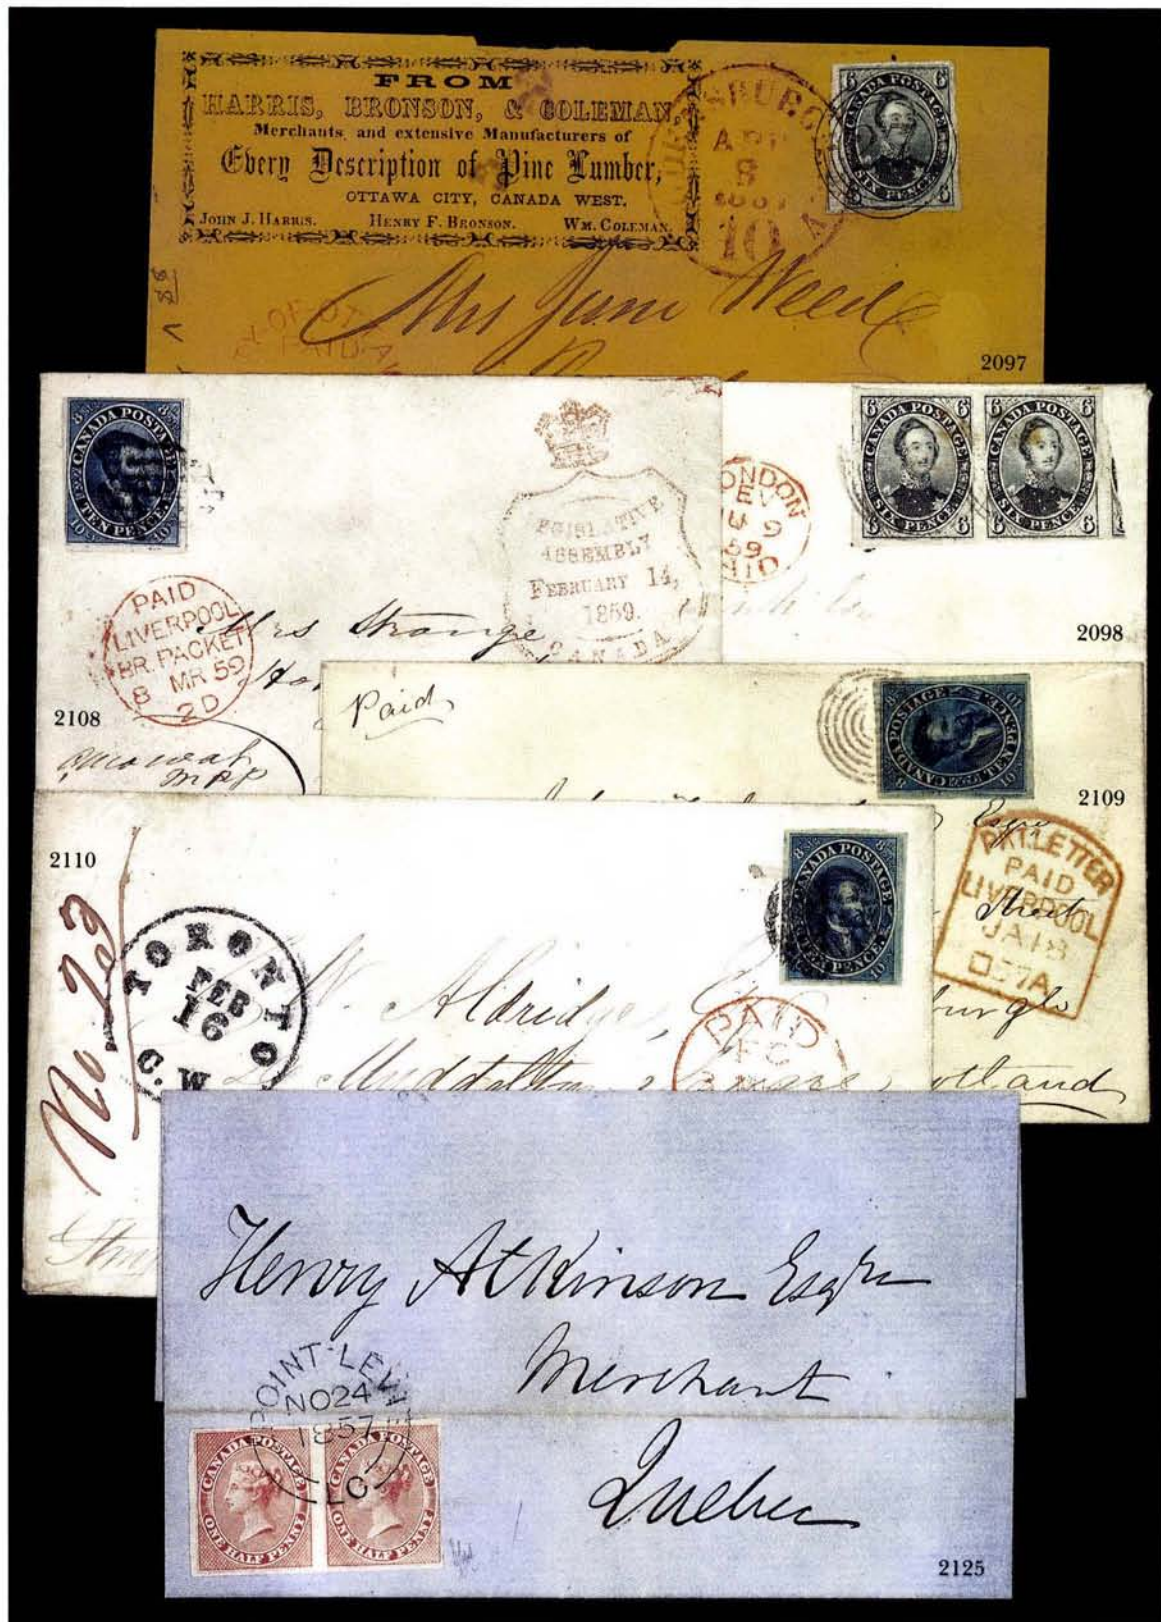 FROM
HARRIS, BRONSON, & COLEMAN,
Merchants and extensive Manufacturers of
Every Description of Pine Lumber,
OTTAWA CITY, CANADA WEST.
JOHN J. HARRIS. HENRY F. BRONSON. WM. COLEMAN.
8
10
6 CANADA POSTAGE 6
6 SIX PENCE 6
Mrs Weed
PAID
2097
CANADA POSTAGE
TEN PENCE
LEGISLATIVE
ASSEMBLY
FEBRUARY 14,
1859.
CANADA
LONDON
9
59
PAID
6 CANADA POSTAGE 6
6 SIX PENCE 6
6 CANADA POSTAGE 6
6 SIX PENCE 6
2098
PAID
LIVERPOOL
BR. PACKET
8 MR 59
2D
Mrs Strange
2108
MPP
Paid
CANADA POSTAGE
TEN PENCE
2109
Esqre
PKT. LETTER
PAID
LIVERPOOL
JA 18
57 A
Street
2110
No 23
TORONTO
FEB
16
C.W.
CANADA POSTAGE
PENCE
W. Aldridge
PAID
Square
Scotland
Henry Atkinson Esqre
Merchant
Quebec
POINT-LEVI
NO 24
1857
LC
CANADA POSTAGE
ONE HALF PENNY
CANADA POSTAGE
ONE HALF PENNY
2125